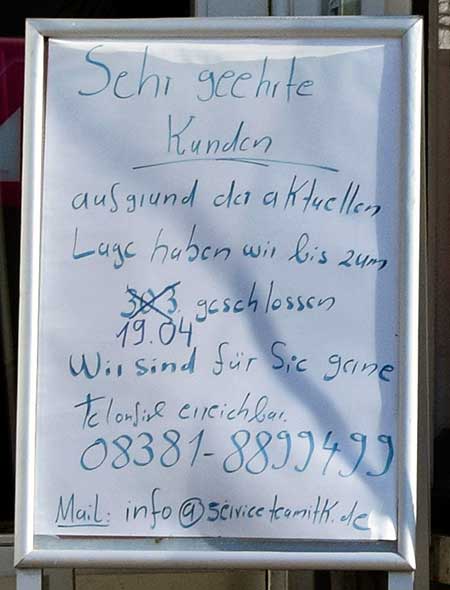 Sehr geehrte
Kunden
aufgrund der aktuellen
Lage haben wir bis zum
30.3. geschlossen
19.04
Wir sind für Sie gerne
erreichbar.
08381-8899499
Mail: info@serviceteamitk.de